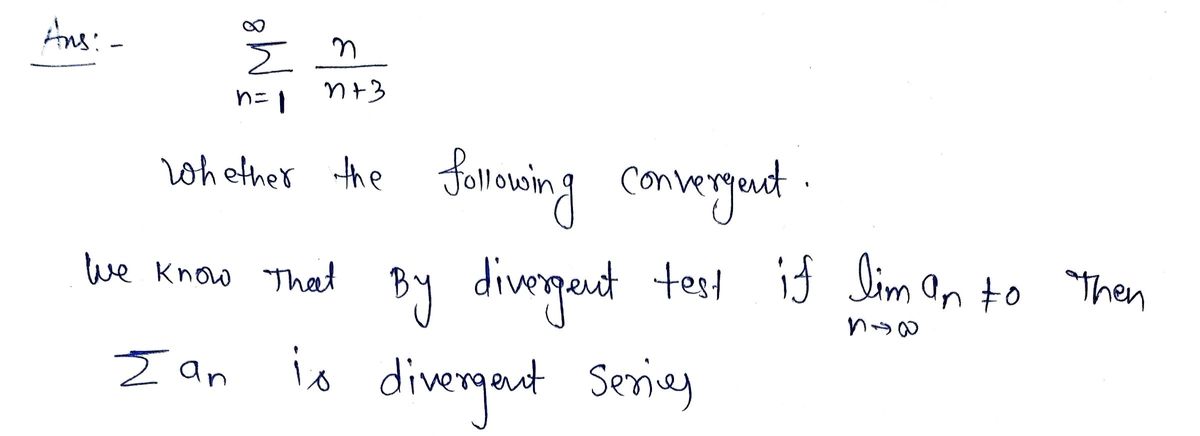 Ans:- ∞
∑ n/(n+3)
n=1
Whether the following convergent.
We know That By divergent test if lim an ≠0 Then
n→∞
∑ an is divergent Series